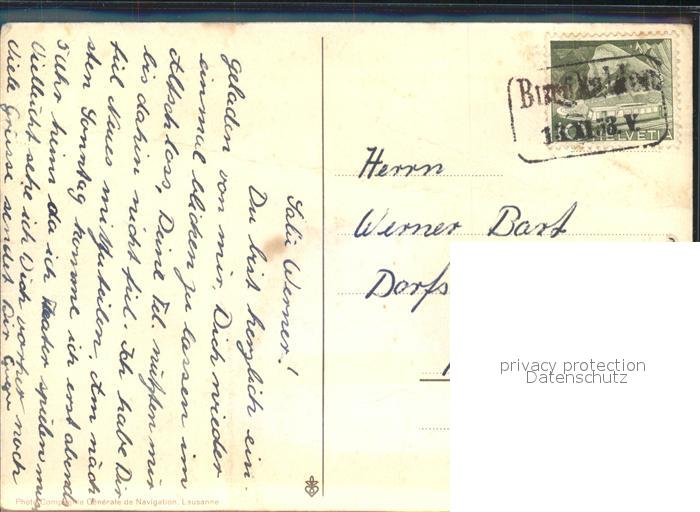 Salü Werner!
Du bist herzlich ein-
geladen von mir, Dich wieder
einmal blicken zu lassen im
loss, Deine Tel. nützten mir
bis dahin nicht fiel. Ich habe Dir
fiel Neues mitzuteilen. Am näch-
sten Sonntag komme ich erst abends
5 Uhr heim da ich Theater spielen muss
Vielleicht sehe ich Dich vorher noch
Viele Grüsse sendet Dir
Photo Compagnie Générale de Navigation, Lausanne
HELVETIA
Herrn
Werner Bart
Dorfs
privacy protection
Datenschutz